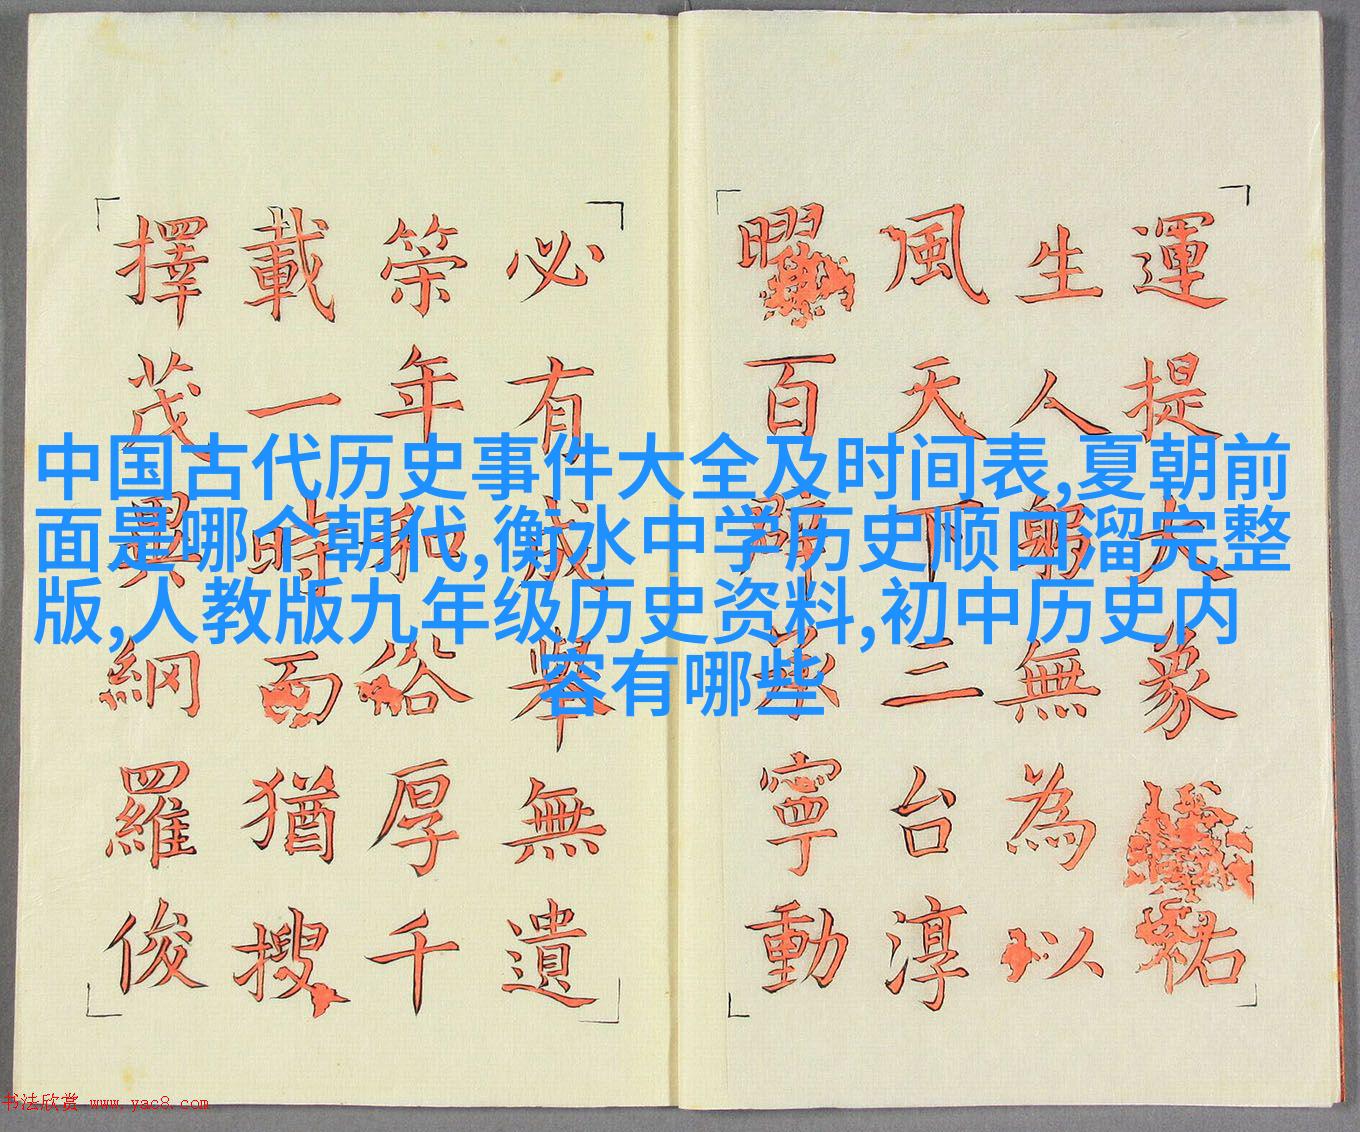 中国古代历史事件大全及时间表,夏朝前
面是哪个朝代,衡水中学历史顺口溜完整
版,人教版九年级历史资料,初中历史内
容有哪些
運提大象祐
生人躬無為以
風天下三台淳
曜百辟承寧動
必有成舉無遺
筞年和俗厚千
載一時而猶搜
擇茂異網羅俊
书法欣赏 www.yac8.com